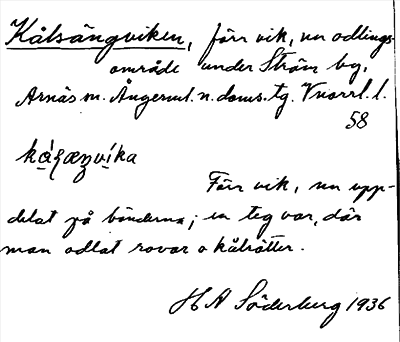 Kålsängviken, förr vik, nu odlings-
område under Ström by,
Arnäs sn. Ångerml. n. doms. tg. Vnorrl. l.
58
kǻʂæŋví́ka
Förr vik, nu upp-
delat på bönderna; en teg var, där
man odlat rovor o kålrötter.
H A Söderberg 1936